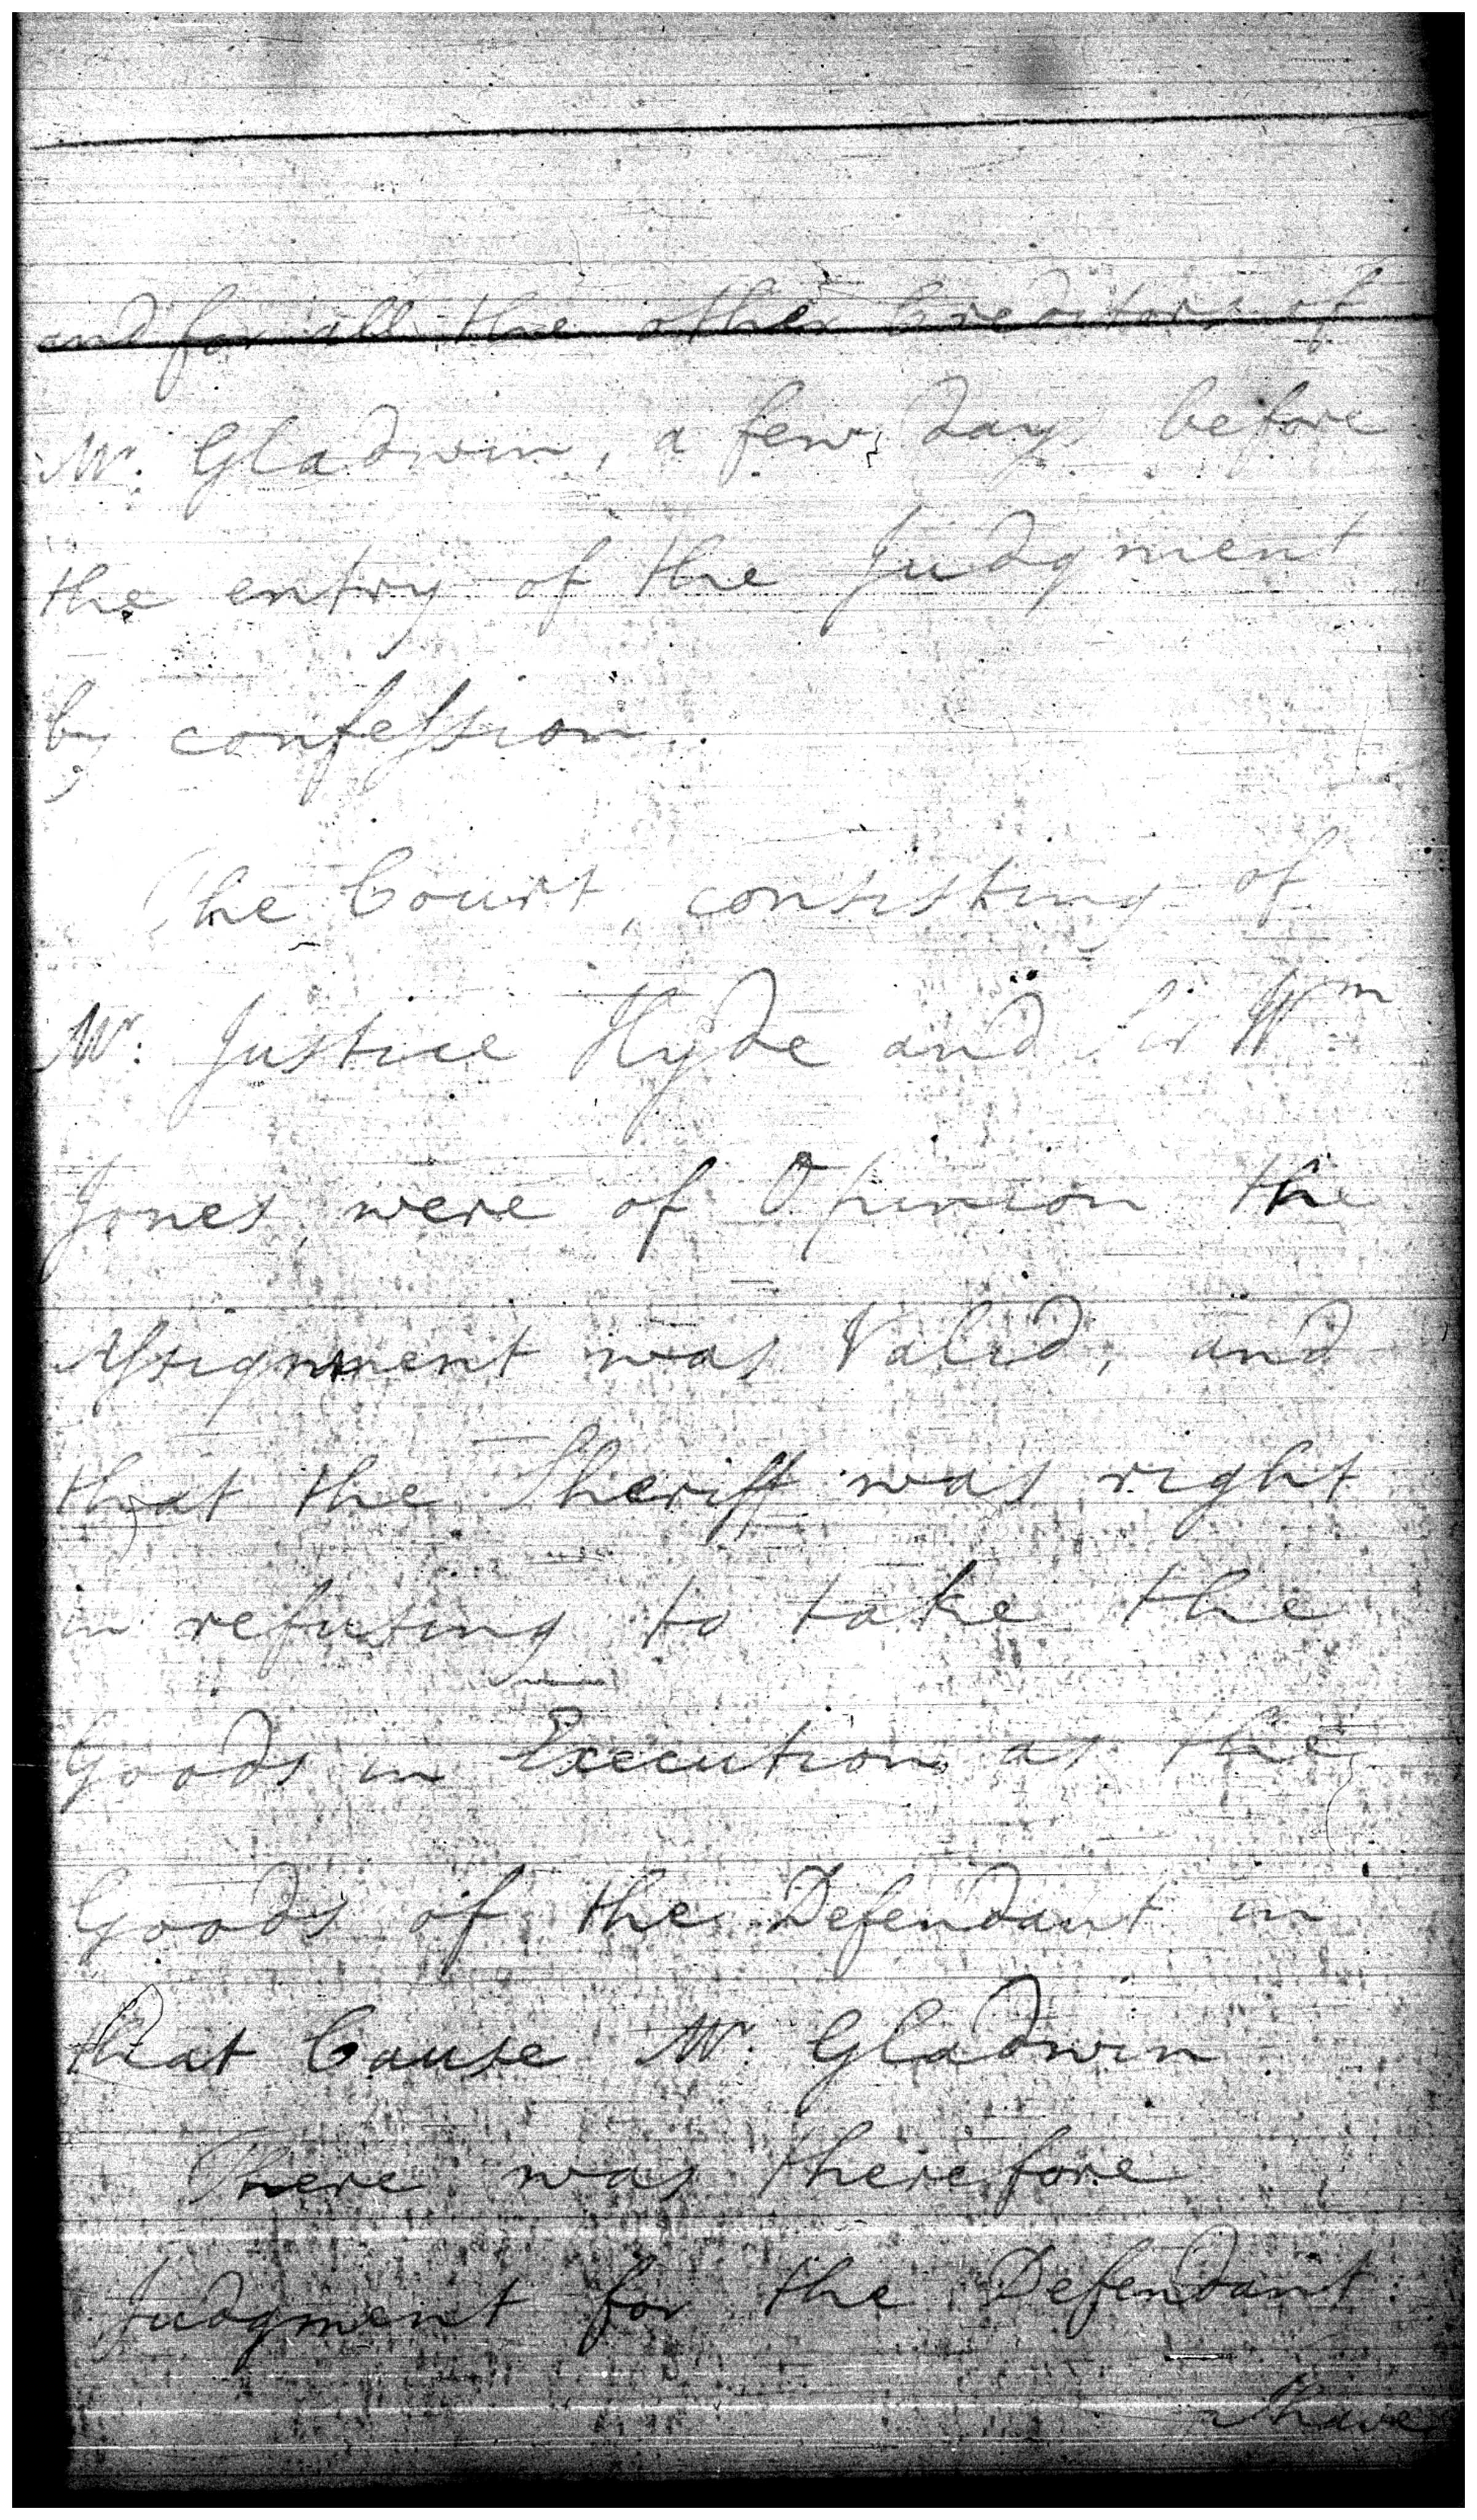 and for all the other Creditors of
Mr. Gladwin, a few days before
the entry of the Judgment
by confeſsion.
The Court, consisting of
Mr. Justice Hyde and Sir Wm
Jones, were of Opinion the
Aſsignment was Valid, and
that the Sheriff was right
in refusing to take the
Goods in Execution as the
Goods of the Defendant in
that Cause Mr. Gladwin
There was therefore
Judgment for the Defendant.
I have